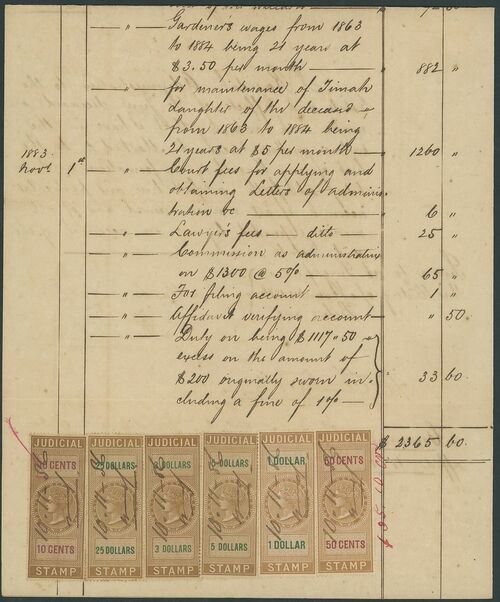 Gardener's wages from 1863
to 1884 being 21 years at
$3.50 per month 882 "
" for maintenance of Timah
daughter of the deceased
from 1863 to 1884 being
21 years at $5 per month 1260 "
1883
Novr 1st " Court fees for applying and
obtaining Letters of adminis
tration &c 6 "
" Lawyer's fees ditto 25 "
" Commission as administratrix
on $1300 @ 5% 65 "
" For filing account 1 "
" Affidavit verifying account " 50
" Duty on being $1117"50
excess on the amount of
$200 originally sworn in-
cluding a fine of 1% 33 60
$ 2365 60
JUDICIAL JUDICIAL JUDICIAL JUDICIAL JUDICIAL JUDICIAL
10 CENTS 25 DOLLARS 3 DOLLARS 5 DOLLARS 1 DOLLAR 50 CENTS
10 CENTS 25 DOLLARS 3 DOLLARS 5 DOLLARS 1 DOLLAR 50 CENTS
STAMP STAMP STAMP STAMP STAMP STAMP